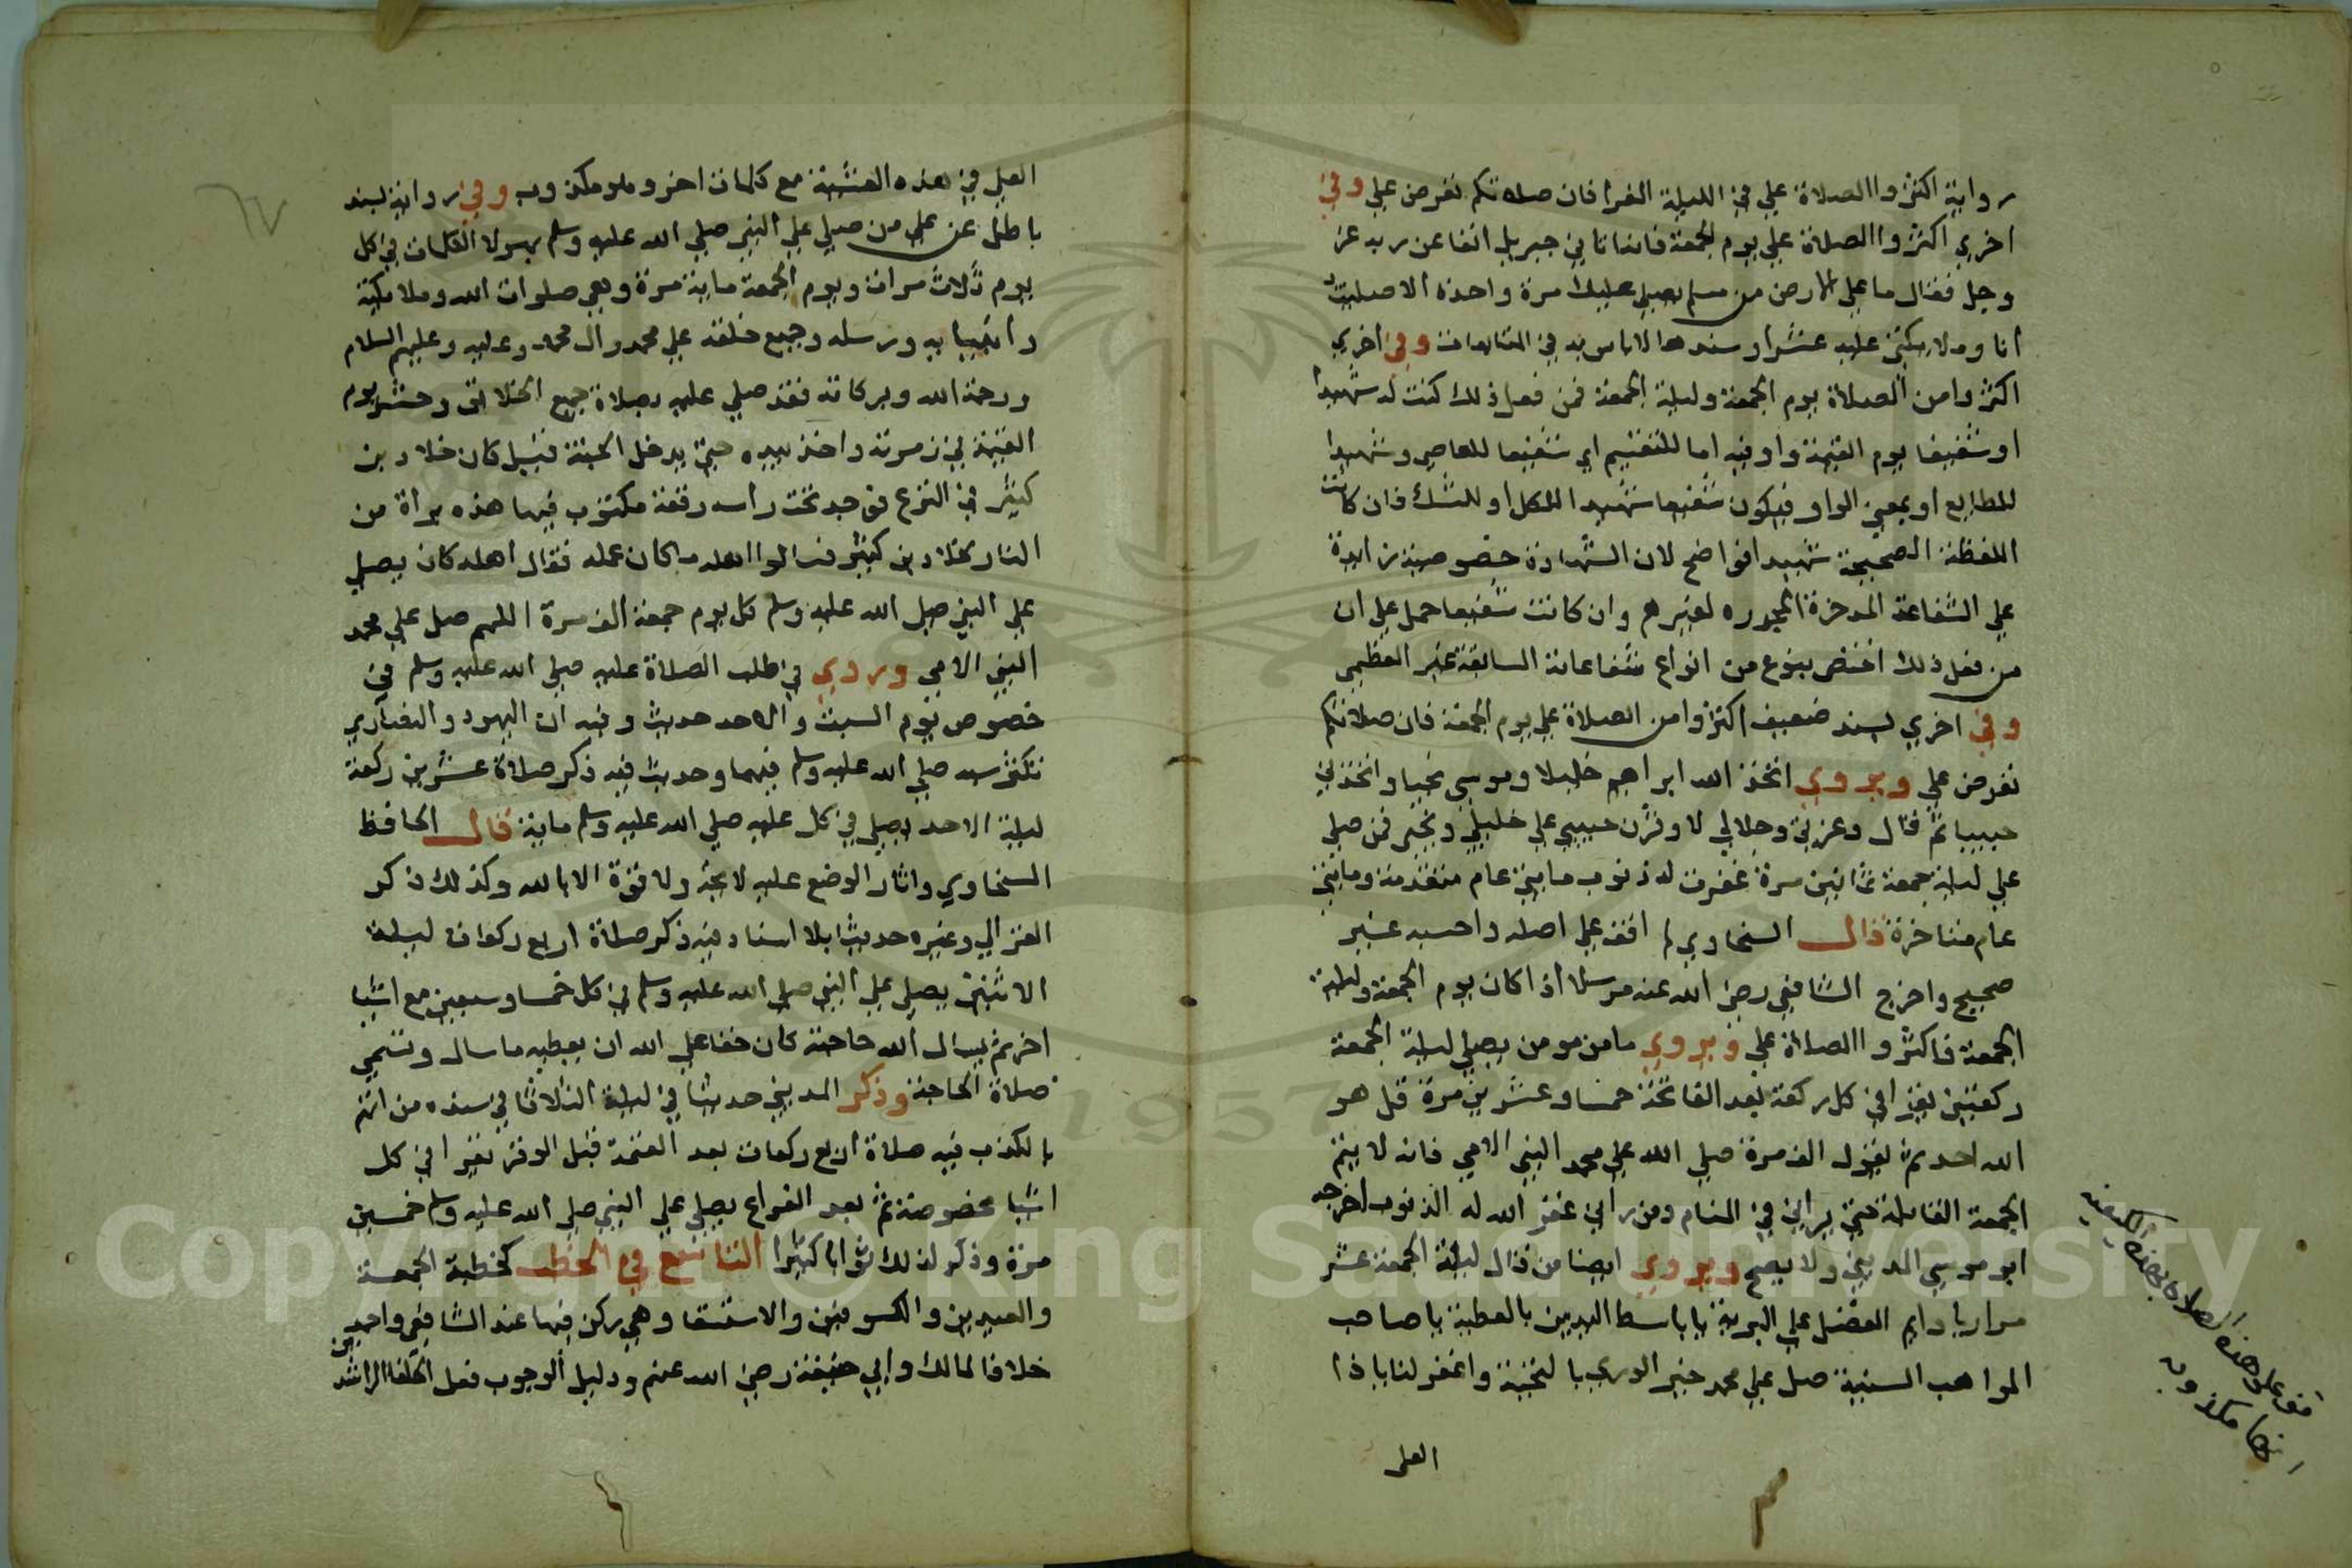 رواية اكثروا الصلاة علي في الليلة الغرا فان صلاتكم تعرض علي وفي
اخري اكثروا الصلاة علي يوم الجمعة فانه اتاني جبريل انفا عن ربه عز
وجل فقال ما علي الارض من مسلم يصلي عليك مرة واحدة الا صليت
انا وملايكتي عليه عشرا وسندها لا باس به في المتابعات وفي اخري
اكثروا من الصلاة يوم الجمعة وليلة الجمعة فمن فعل ذلك كنت له شهيدا
او شفيعا يوم القيمة واو فيه اما للتقسيم اي شفيعا للعاصي وشهيدا
للطايع او بمعني الواو فيكون شفيعا شهيدا للكل او للشك فان كانت
اللفظة الصحيحة شهيدا فواضح لان الشهادة خصوصية زايدة
علي الشفاعة المدخرة لغيرهم وان كانت شفيعا حمل علي ان
من فعل ذلك اختص بنوع من انواع شفاعاته السابقة غير العظمي
وفي اخري بسند ضعيف اكثروا من الصلاة علي يوم الجمعة فان صلاتكم
تعرض علي ويروي اتخذ الله ابراهيم خليلا وموسي نجيا واتخذني
حبيبا ثم قال وعزتي وجلالي لاوثرن حبيبي علي خليلي ونجيي فمن صلي
علي ليلة جمعة ثمانين مرة غفرت له ذنوب مايتي عام متقدمة ومايتي
عام متاخرة قال السخاوي لم اقف علي اصله واحسبه غير
صحيح واخرج الشافعي رضي الله عنه مرسلا اذا كان يوم الجمعة وليلة
الجمعة فاكثروا الصلاة علي ويروي ما من مومن يصلي ليلة الجمعة
ركعتين يقرا في كل ركعة بعد الفاتحة خمسا وعشرين مرة قل هو
الله احد ثم يقول الف مرة صلي الله علي محمد النبي الامي فانه لا يتم
الجمعة القابلة حتي يراني في المنام ومن راني غفر الله له الذنوب اخرجه
ابو موسي المديني ولا يصح ويروي ايضا من قال ليلة الجمعة عشر
مرار يا دايم الفضل علي البرية يا باسط اليدين بالعطية يا صاحب
المواهب السنية صل علي محمد خير الوري بالتحية واغفر لنا يا ذا
العلي
العلي في هذه العشية مع كلمات اخر وهو مكذوب وفي رواية بسند
باطل عن علي من صلي علي النبي صلي الله عليه وسلم بهولا الكلمات في كل
يوم ثلاث مرات ويوم الجمعة ماية مرة وهي صلوات الله وملايكته
وانبيايه ورسله وجميع خلقه علي محمد وال محمد وعليه وعليهم السلام
ورحمة الله وبركاته فقد صلي عليه بصلاة جميع الخلايق وحشر يوم
القيمة في زمرته واخذ بيده حتي يدخل الجنة قيل كان خلاد بن
كثير في النزع فوجد تحت راسه رقعة مكتوب فيها هذه براة من
النار لخلاد بن كثير فسالوا اهله ما كان عمله فقال اهله كان يصلي
علي النبي صلي الله عليه وسلم كل يوم جمعة الف مرة اللهم صل علي محمد
النبي الامي وروي في طلب الصلاة عليه صلي الله عليه وسلم في
خصوص يوم السبت والاحد حديث وفيه ان اليهود والنصاري
تكثر سبه صلي الله عليه وسلم فيهما وحديث فيه ذكر صلاة عشرين ركعة
ليلة الاحد يصلي في كل عليه صلي الله عليه وسلم ماية قال الحافظ
السخاوي واثار الوضع عليه لايحة ولا قوة الا بالله وكذلك ذكر
الغزالي وغيره حديثا بلا اسناد فيه ذكر صلاة اربع ركعات ليلة
الاثنين يصلي علي النبي صلي الله عليه وسلم في كل خمسا وسبعين مع اشيا
اخر ثم يسال الله حاجته كان حقا علي الله ان يعطيه ما سال وتسمي
صلاة الحاجة وذكر المديني حديثا في ليلة الثلاثا في سنده من اتهم
بالكذب فيه صلاة اربع ركعات بعد العتمة قبل الوتر يقرا في كل
اشيا مخصوصة ثم بعد الفراغ يصلي علي النبي صلي الله عليه وسلم خمسين
مرة وذكر لذلك ثوابا كثيرا التاسع في الخطب كخطبة الجمعة
والعيدين والكسوفين والاستسقا وهي ركن فيها عند الشافعي واحمد
خلافا لمالك وابي حنيفة رضي الله عنهم ودليل الوجوب فعل الخلفا الراشدين
Copyright © King Saud University
1957